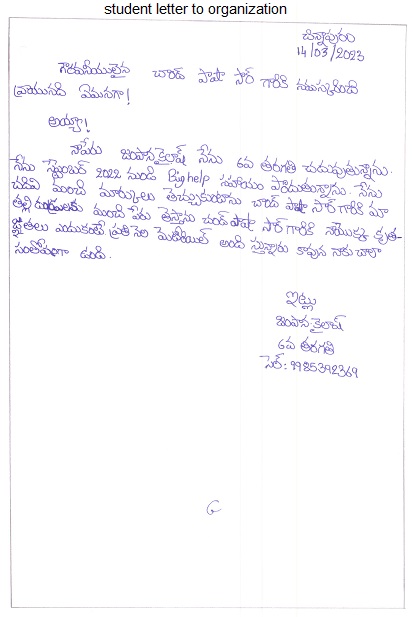 student letter to organization
చిన్నాపురం
14/03/2023
గౌరవనీయులైన చాంద్ పాషా సార్ గారికి నమస్కరించి
వ్రాయునది ఏమనగా!
అయ్యా!
నాపేరు జంపాన కైలాష్ నేను 6వ తరగతి చదువుతున్నాను.
నేను సెప్టెంబర్ 2022 నుండి Bighelp సహాయం పొందుతున్నాను. నేను
చదివి మంచి మార్కులు తెచ్చుకుంటాను చాంద్ పాషా సార్ గారికి మా
తల్లి మంచి పేరు తెస్తాను చంద్ పాషా సార్ గారికి నాయొక్క కృత-
జ్ఞతలు ఎందుకంటే ప్రతి నెల మెటీరియల్ అంది స్తున్నారు కావున నాకు చాలా
సంతోషంగా ఉంది.
ఇట్లు
జంపాన కైలాష్
6వ తరగతి
సెల్: 9985392369